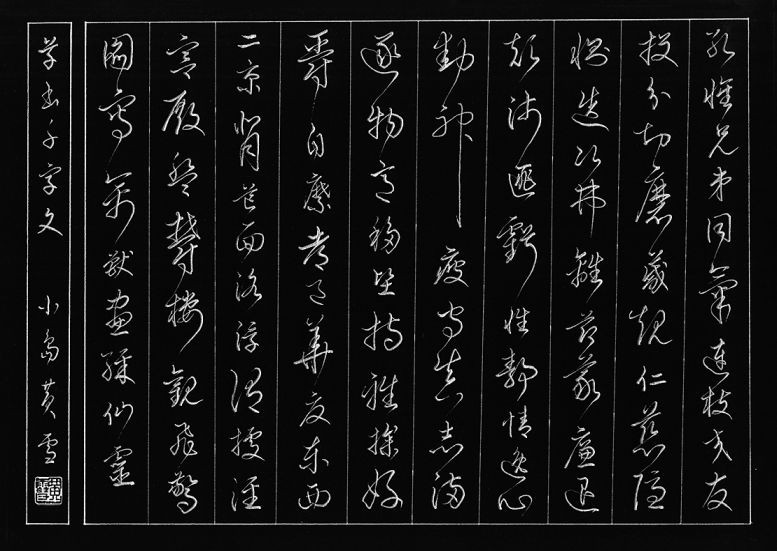 孔懷兄弟同氣連枝交友
投分切磨箴規仁慈隱
惻造次弗離節義廉退
顛沛匪虧性靜情逸心
動神疲守真志滿
逐物意移堅持雅操好
爵自縻都邑華夏東西
二京背芒面洛浮渭據涇
宮殿盤鬱樓觀飛驚
圖寫禽獸畫綵仙靈
草書千字文 小島黄雪